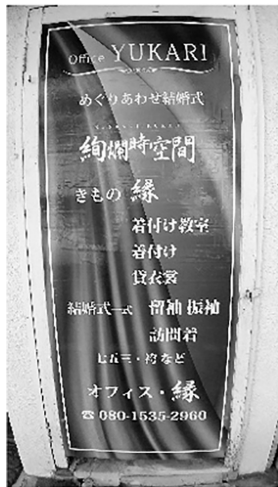 Office YUKARI
めぐりあわせ結婚式
絢爛時空間
きもの 縁
着付け教室
着付け
貸衣裳
結婚式一式 留袖 振袖
訪問着
七五三・袴など
オフィス・縁
☎ 080-1535-2960